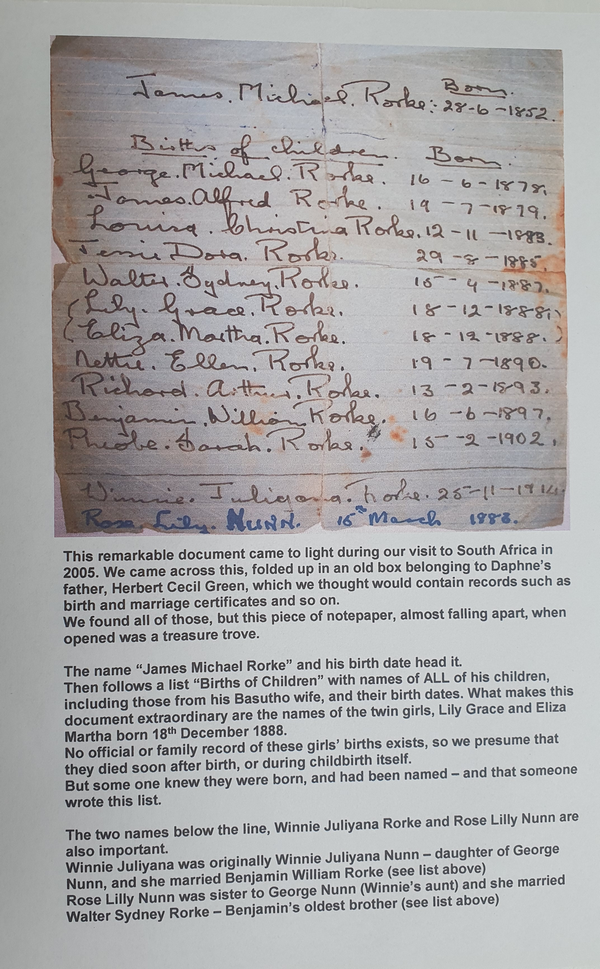 Born.
James. Michael. Rorke: 28-6-1852.
Births of children. Born.
George. Michael. Rorke. 16-6-1878.
James. Alfred Rorke. 19-7-1879.
Louisa. Christina Rorke. 12-11-1883.
Jessie Dora. Rorke. 29-8-1885.
Walter. Sydney. Rorke. 15-4-1887.
(Lily. Grace. Rorke. 18-12-1888.)
(Eliza. Martha. Rorke. 18-12-1888.)
Nettie. Ellen. Rorke. 19-7-1890.
Richard. Arthur. Rorke. 13-2-1893.
Benjamin. William. Rorke. 16-6-1897.
Phiobe. Sarah. Rorke. 15-2-1902.
Winnie. Juliyana. Rorke. 25-11-1914.
Rose Lily. NUNN. 15th March 1883.
This remarkable document came to light during our visit to South Africa in
2005. We came across this, folded up in an old box belonging to Daphne's
father, Herbert Cecil Green, which we thought would contain records such as
birth and marriage certificates and so on.
We found all of those, but this piece of notepaper, almost falling apart, when
opened was a treasure trove.
The name “James Michael Rorke” and his birth date head it.
Then follows a list “Births of Children” with names of ALL of his children,
including those from his Basutho wife, and their birth dates. What makes this
document extraordinary are the names of the twin girls, Lily Grace and Eliza
Martha born 18th December 1888.
No official or family record of these girls' births exists, so we presume that
they died soon after birth, or during childbirth itself.
But some one knew they were born, and had been named – and that someone
wrote this list.
The two names below the line, Winnie Juliyana Rorke and Rose Lilly Nunn are
also important.
Winnie Juliyana was originally Winnie Juliyana Nunn – daughter of George
Nunn, and she married Benjamin William Rorke (see list above)
Rose Lilly Nunn was sister to George Nunn (Winnie's aunt) and she married
Walter Sydney Rorke – Benjamin's oldest brother (see list above)